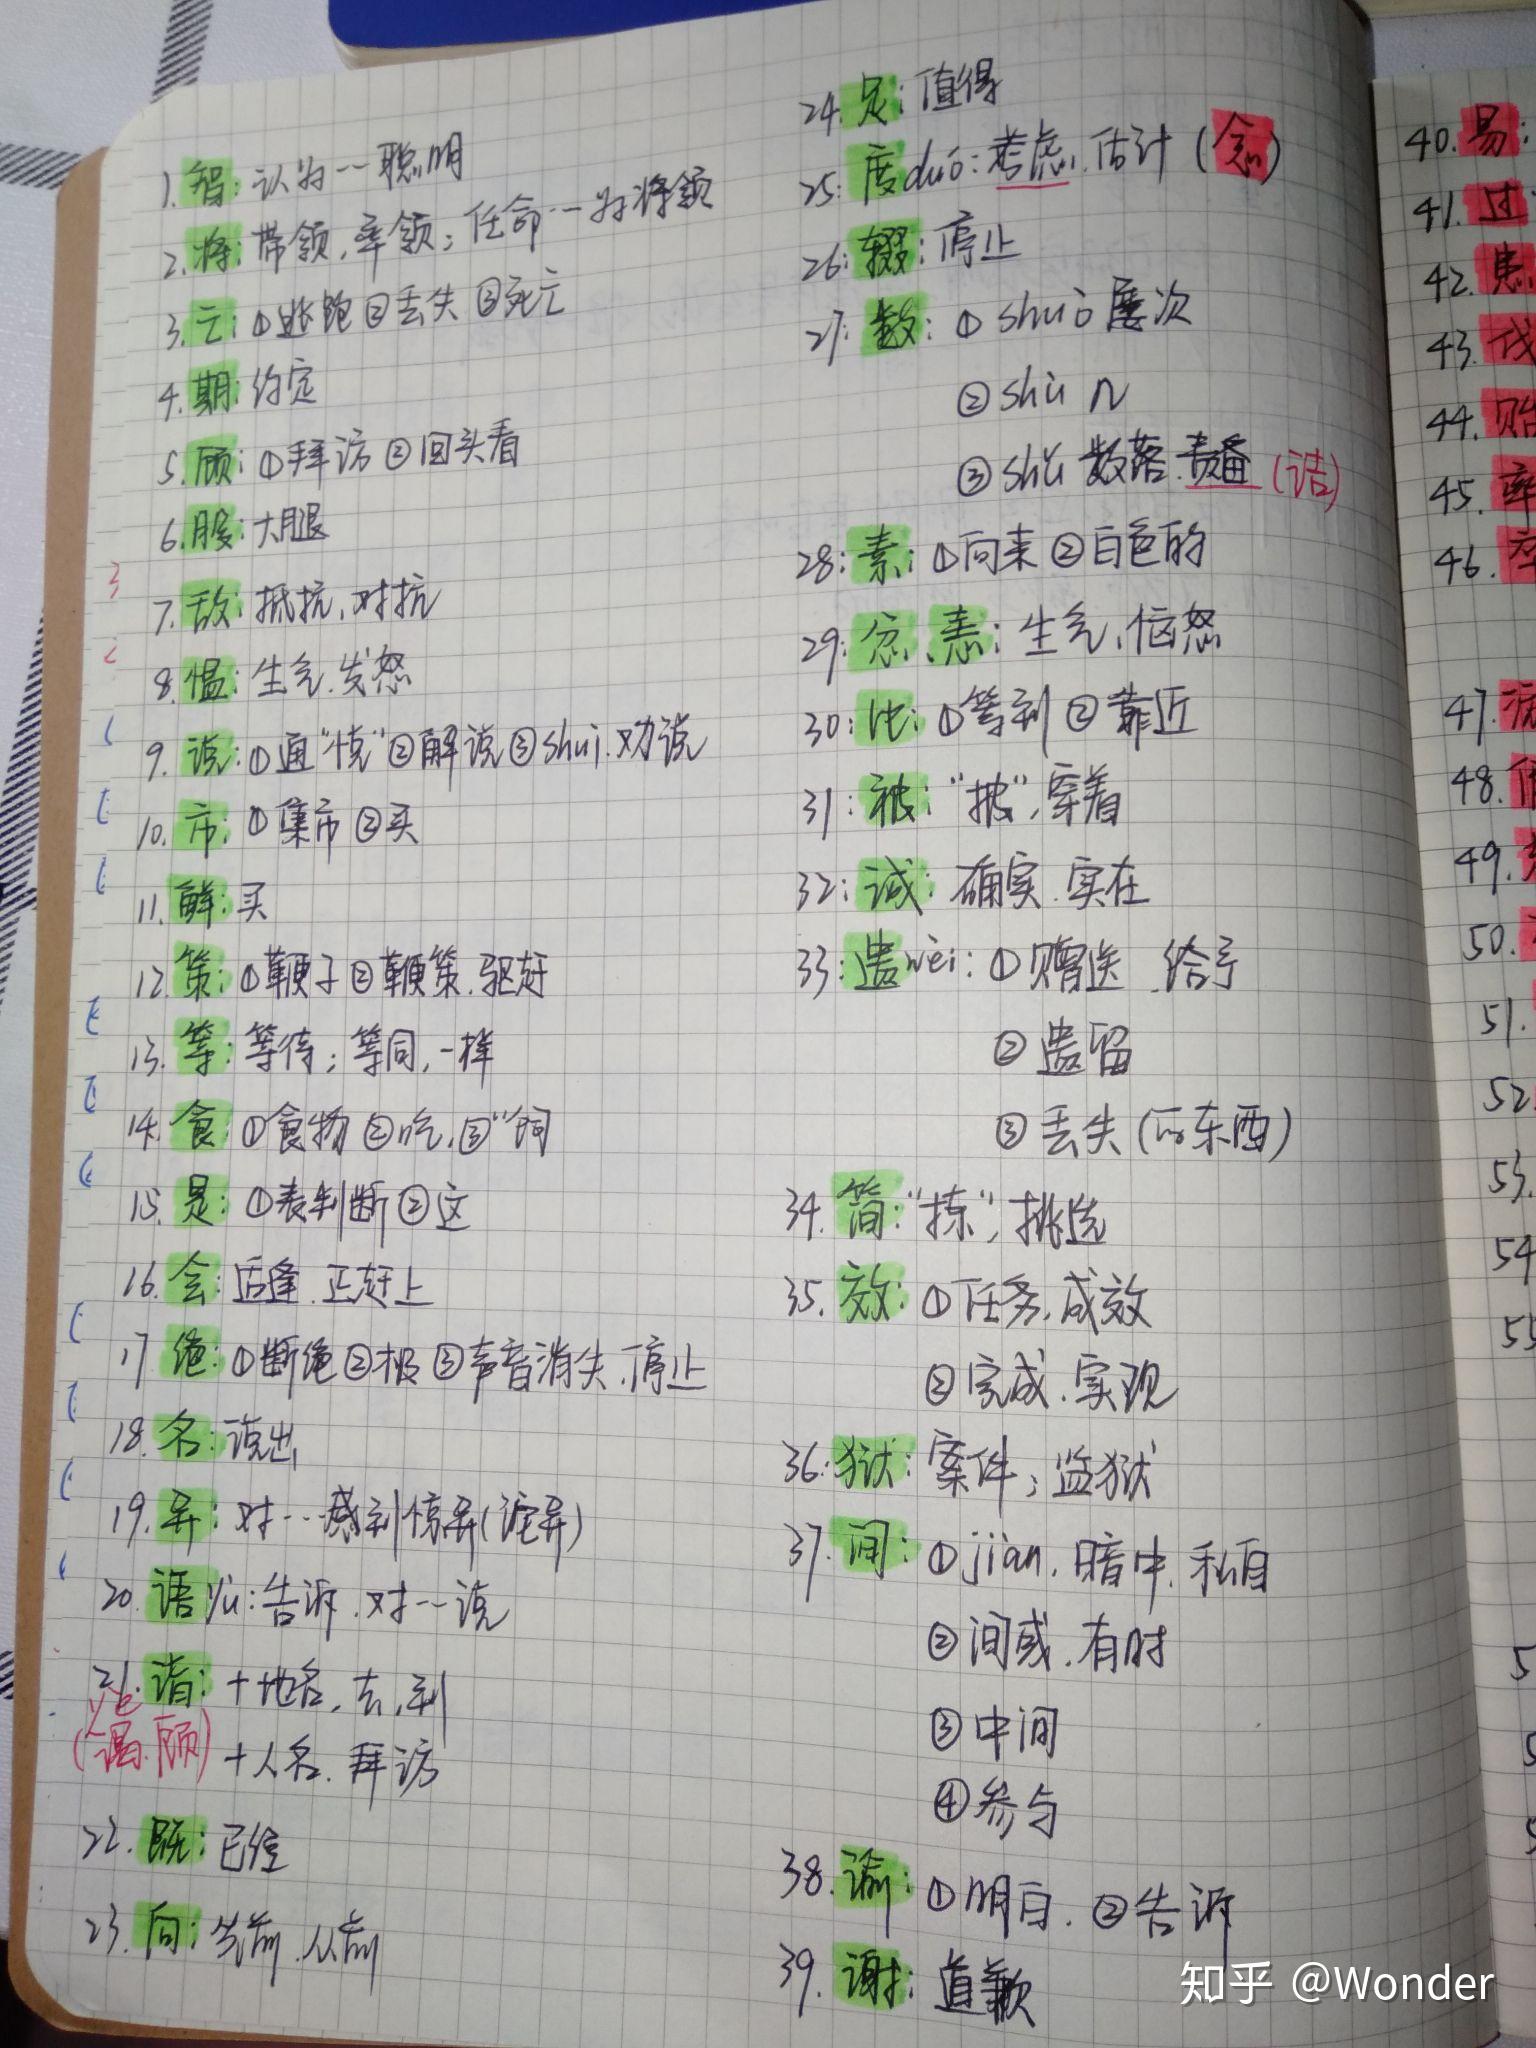 1. 智: 认为…聪明
2. 将: 带领, 率领; 任命…为将领
3. 亡: ①逃跑 ②丢失 ③死亡
4. 期: 约定
5. 顾: ①拜访 ②回头看
6. 股: 大腿
7. 敌: 抵抗, 对抗
8. 愠: 生气, 发怒
9. 说: ①通“悦” ②解说 ③shuì, 劝说
10. 市: ①集市 ②买
11. 鲜: 买
12. 策: ①鞭子 ②鞭策, 驱赶
13. 等: 等待; 等同, 一样
14. 食: ①食物 ②吃, ③“饲
15. 是: ①表判断 ②这
16. 会: 适逢, 正赶上
17. 绝: ①断绝 ②极 ③声音消失, 停止
18. 名: 说出
19. 异: 对…感到惊异(诧异)
20. 语 yù: 告诉, 对…说
21. 诣: +地名, 去, 到
yè
(谒、顾) +人名, 拜访
22. 既: 已经
23. 向: 先前, 从前
24. 足: 值得
25. 度 duó: 考虑, 估计 (念)
26. 辍: 停止
27. 数: ①shuò 屡次
②shù 几
③shǔ 数落, 责备 (诘)
28. 素: ①向来 ②白色的
29. 忿、恚: 生气, 恼怒
30. 比: ①等到 ②靠近
31. 被: “披”, 穿着
32. 诚: 确实, 实在
33. 遗 wèi: ①赠送, 给予
②遗留
③丢失(的东西)
34. 简: “拣”, 挑选
35. 效: ①任务, 成效
②完成, 实现
36. 狱: 案件; 监狱
37. 间: ①jian, 暗中, 私自
②间或, 有时
③中间
④参与
38. 谕: ①明白, ②告诉
39. 谢: 道歉
40. 易:
41. 过
42. 患
43. 伐
44. 贻
45. 率
46.
47.
48.
49.
50.
51.
52
53.
54
55
知乎 @Wonder